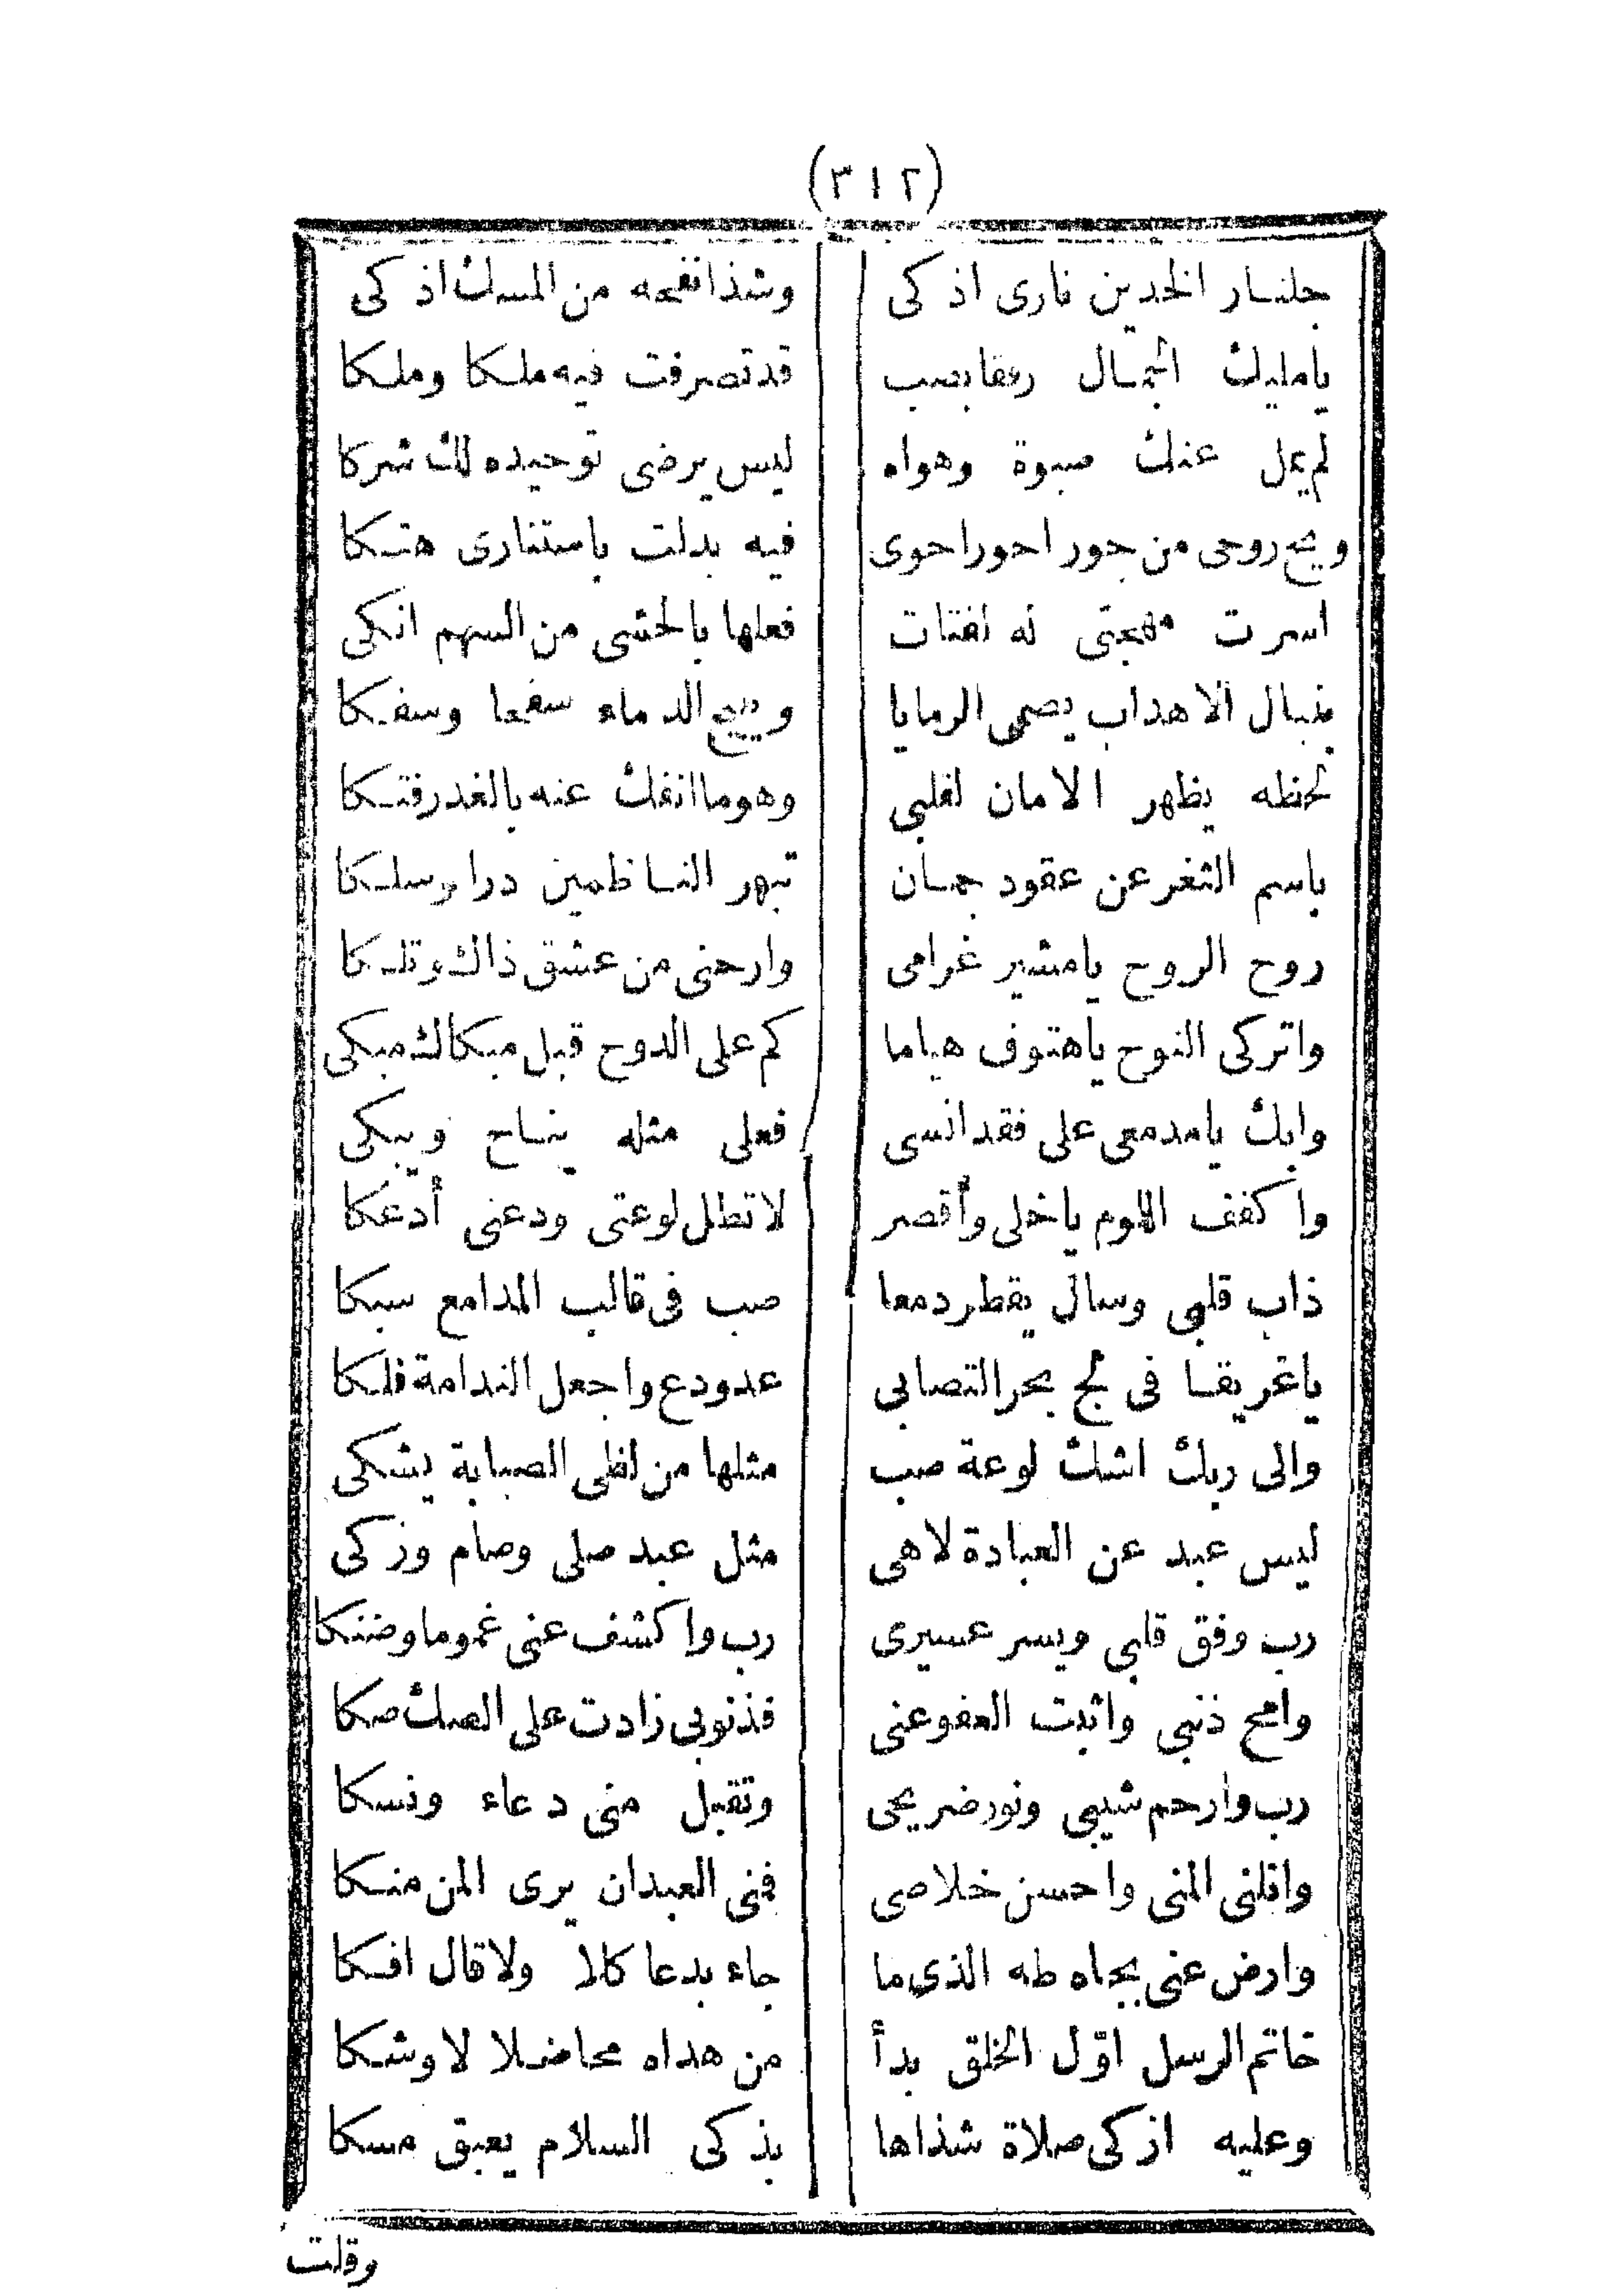 (٣١٢)
جلنار الخدين نارى اذكى وشذا نفحه من المسك اذكى
يامليك الجمال رفقا بصب قد تصرفت فيه ملكا وملكا
لم يمل عنك صبوة وهواه ليس يرضى توحيده لك شركا
ويح روحى من جور احور احوى فيه بدلت باستتارى هتكا
اسرت مهجتى له لفتات فعلها بالحشى من السهم انكى
بنبال الاهداب يصمى الرمايا ويبيح الدماء سفحا وسفكا
لحظه يظهر الامان لقلبى وهو ما انفك عنه بالغدر فتكا
باسم الثغر عن عقود جمان تبهر الناظمين درا وسلكا
روح الروح يامشير غرامى وارحنى من عشق ذاك وتلكا
واتركى النوح ياهتوف هياما كم على الدوح قبل مبكاك مبكى
وابك يامدمعى على فقد انسى فعلى مثله يناح ويبكى
واكفف اللوم ياخلى وأقصر لا تطل لوعتى ودعنى أدعكا
ذاب قلبى وسال يقطر دمعا صب فى قالب المدامع سبكا
ياغريقا فى لج بحر التصابى عد ودع واجعل الندامة فلكا
والى ربك اشك لوعة صب مثلها من لظى الصبابة يشكى
ليس عبد عن العبادة لاهى مثل عبد صلى وصام وزكى
رب وفق قلبى ويسر عسيرى رب واكشف عنى غموما وضنكا
وامح ذنبى واثبت العفو عنى فذنوبى زادت على الصك صكا
رب وارحم شيبى ونور ضريحى وتقبل منى دعاء ونسكا
وانلنى المنى واحسن خلاصى فمنى العبد ان يرى المن منكا
وارض عنى بجاه طه الذى ما جاء بدعا كلا ولا قال افكا
خاتم الرسل اوّل الخلق بدأ من هداه محا ضلالا وشكا
وعليه ازكى صلاة شذاها بذكى السلام يعبق مسكا
وقلت